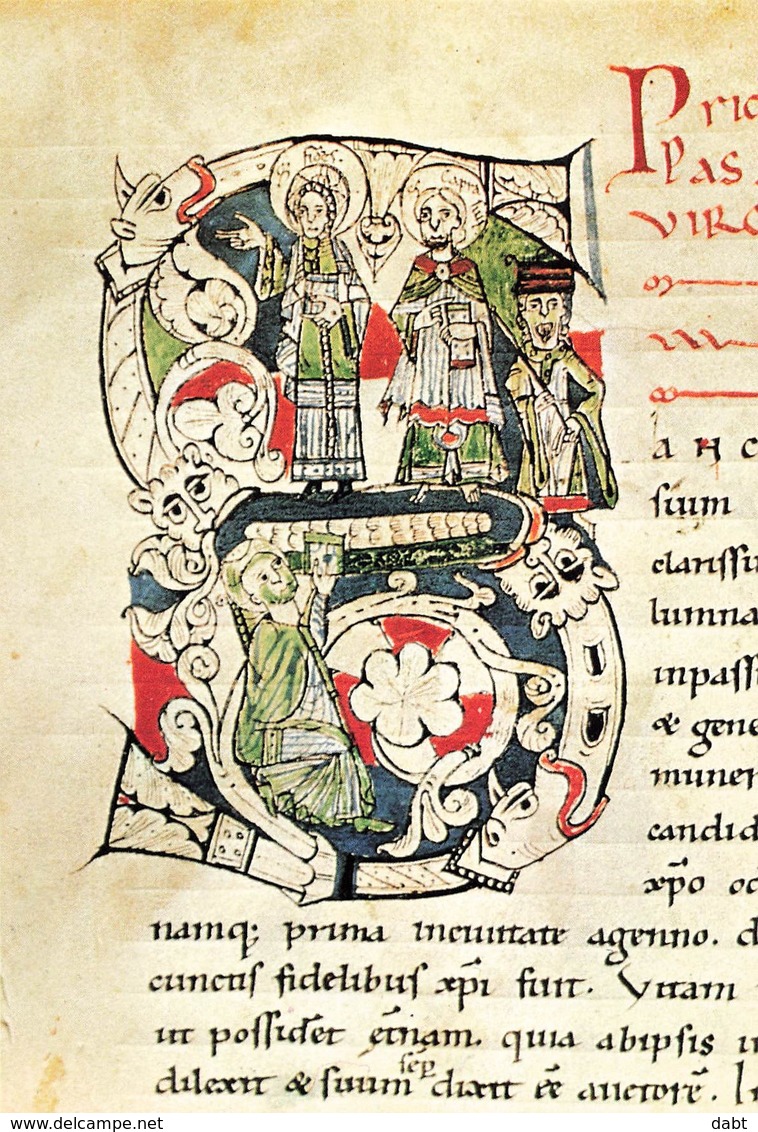 Pric
pas
VIRG
ANC
suum
clarissi
lumna
inpassi
& gene
muner
candid
xp̄o oc
namq; prima inciuitate agenno. d
cunctis fidelibus xp̄i fuit. Vitam
ut possidēt et̄nam. quia abipsis i
sēp
dilexit & suum dixit eē auctorē. I
www.delcampe.net
dabt